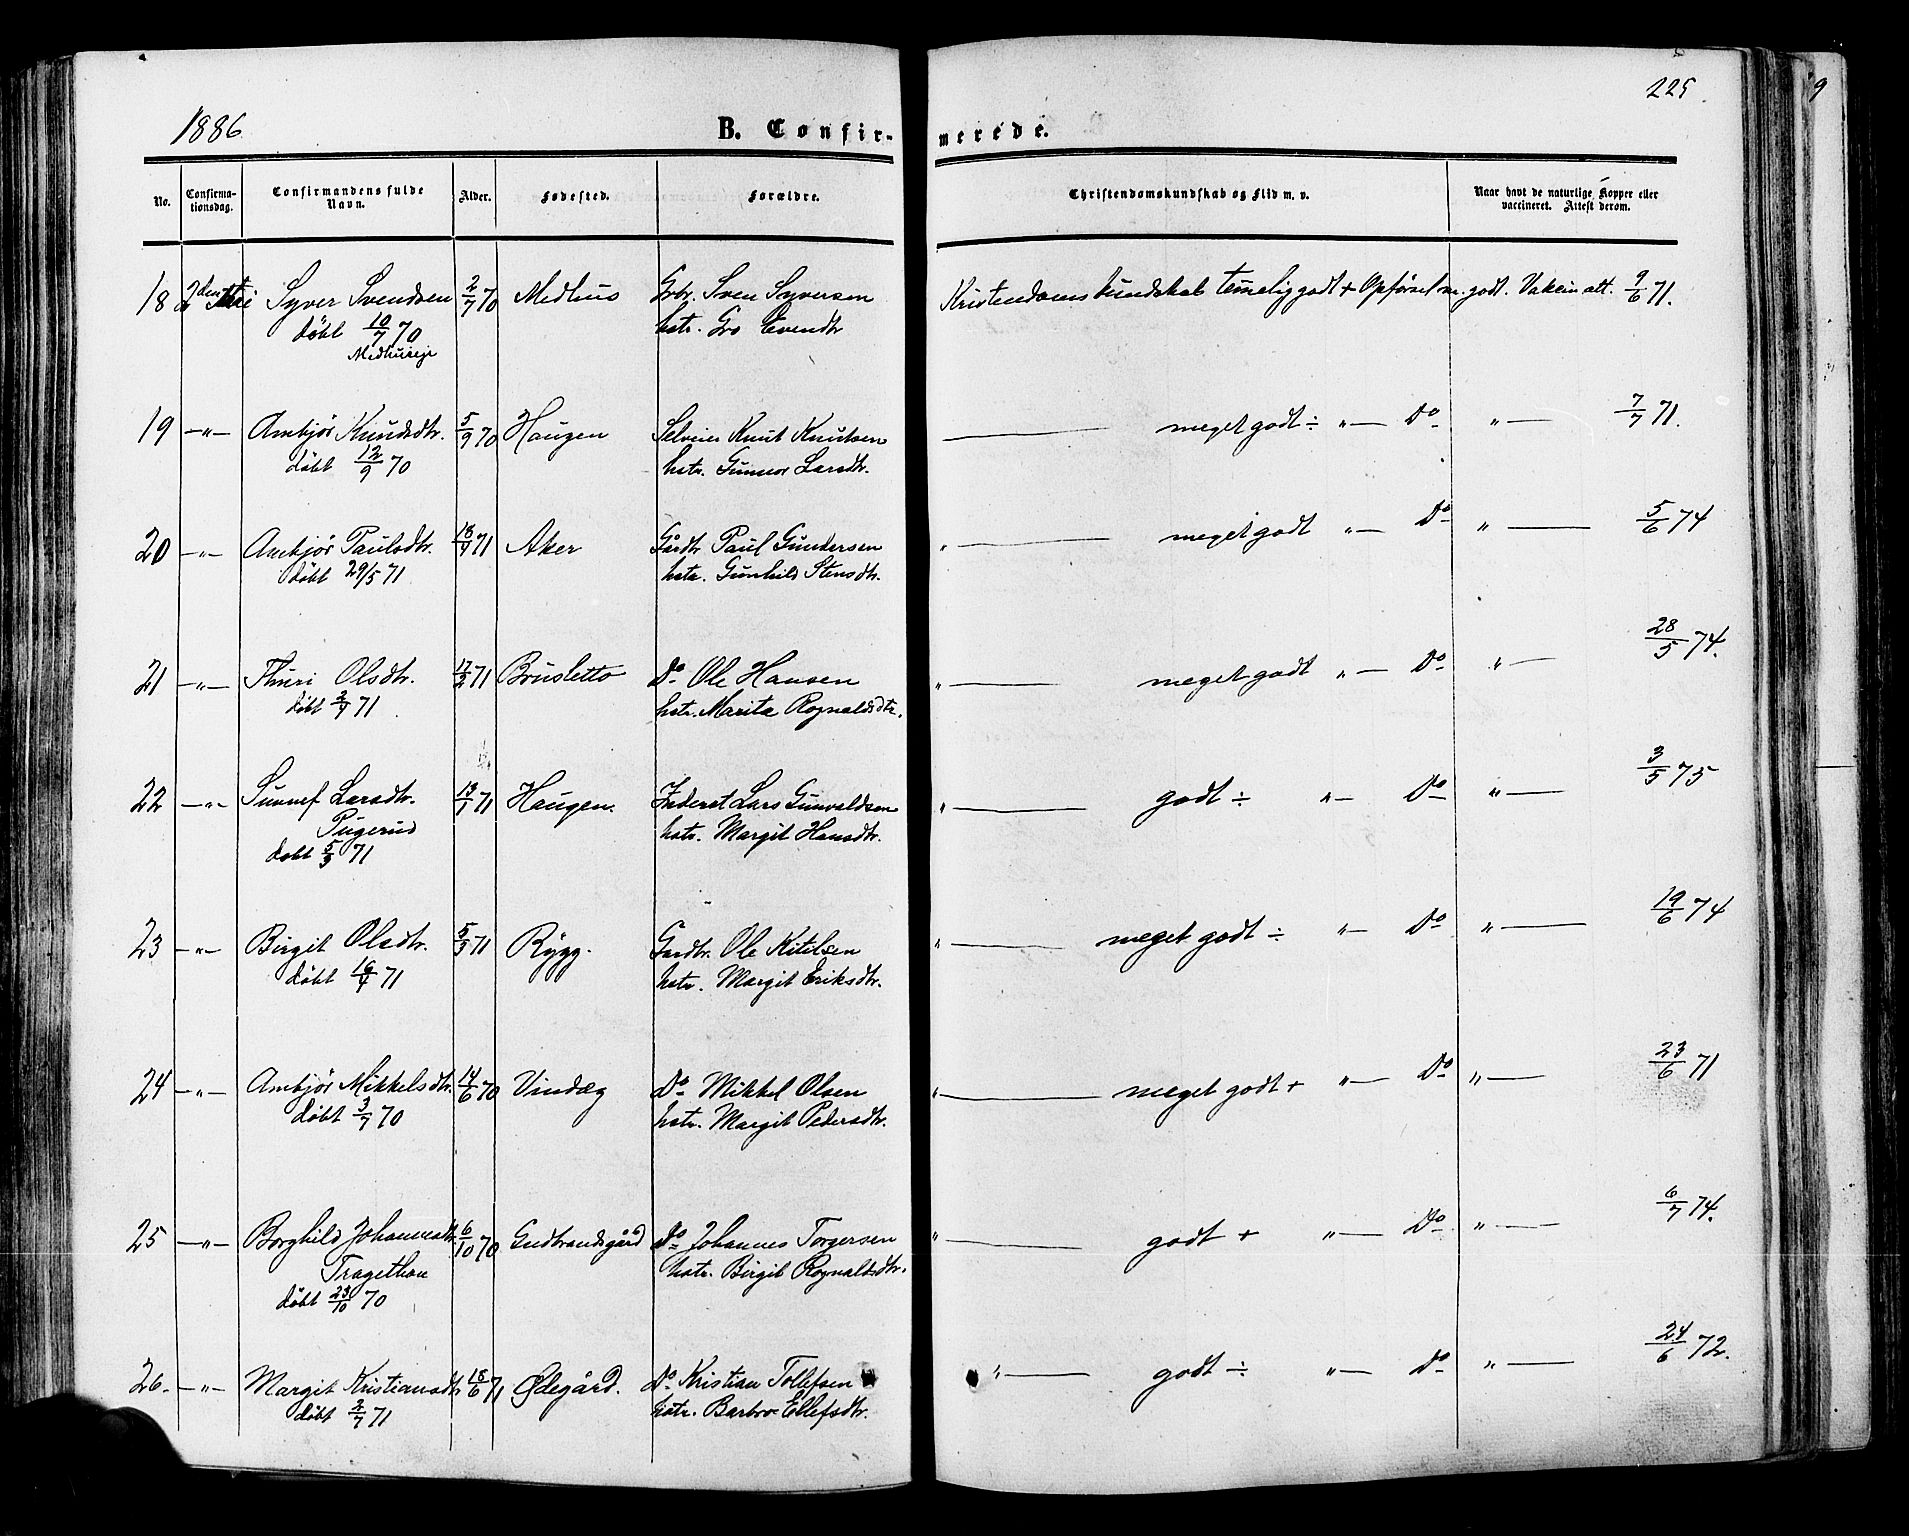 225
9
1886
B. Confir-
merede.
No.
Confirma-
tionsdag.
Confirmandens fulde
Navn.
Alder.
Fødested.
Forældre.
Christendomskundskab og Flid m. v.
Naar havt de naturlige Kopper eller
vaccineret. Attest derom.
18 2den Syver Svendsen 2/7 70 Medhus Gbr. Sven Syversen Kristendomskundskab temelig godt + Opførsel m. godt. Vakcin att. 9/6 71.
døbt 10/7 70 hstr. Gro Evendtr
Medhuseje
19 -"- Ambjør Knudsdtr. 5/9 70 Haugen Selveier Knut Knutsen meget godt ÷ "- Do "- 7/7 71.
døbt 12/9 70 hstr. Gunnor Larsdtr.
20 -"- Ambjør Paulsdtr. 18/4 71 Aker Gårdbr. Paul Gundersen "- meget godt "- Do "- 5/6 74
døbt 29/5 71 hstr. Gunhild Stensdtr.
21 -"- Thuri Olsdtr. 12/2 71 Brusletto Do Ole Hansen "- meget godt "- Do "- 28/5 74.
døbt 2/4 71 hstr. Marita Rognaldsdtr.
22 -"- Sunnef Larsdtr. 13/1 71 Haugen. Inderst Lars Gunvaldsen "- godt ÷ "- Do "- 3/5 75
Pugerud hstr. Margit Hansdtr.
døbt 5/3 71
23 -"- Birgit Olsdtr. 5/3 71 Rÿgg. Gardbr. Ole Kitilsen "- meget godt ÷ "- Do "- 19/6 74
døbt 16/4 71 hstr. Margit Eriksdtr.
24 -"- Ambjør Mikkelsdtr. 14/6 70 Vindæg Do Mikkel Olsen "- meget godt + "- Do "- 23/6 71
døbt 3/7 70 hstr. Margit Pedersdtr.
25 -"- Borghild Johannesdtr 6/10 70 Gudbrandsgård Do Johannes Torgersen "- godt + "- Do "- 6/7 74.
Tragethon hstr. Birgit Rognaldsdtr.
døbt 23/10 70
26. -"- Margit Kristiansdtr 18/6 71 Ødegård. Do Kristian Tollefsen "- godt ÷ "- Do "- 24/6 72.
døbt 2/7 71 hstr. Barbro Ellefsdtr.